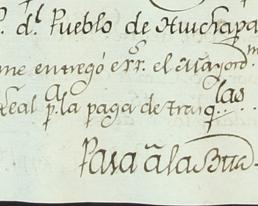 d.l Pueblo de Huichapa
me entregó e rr. el Mayord.m
Real p.a la paga de tra q.las
Pasa a la Bta